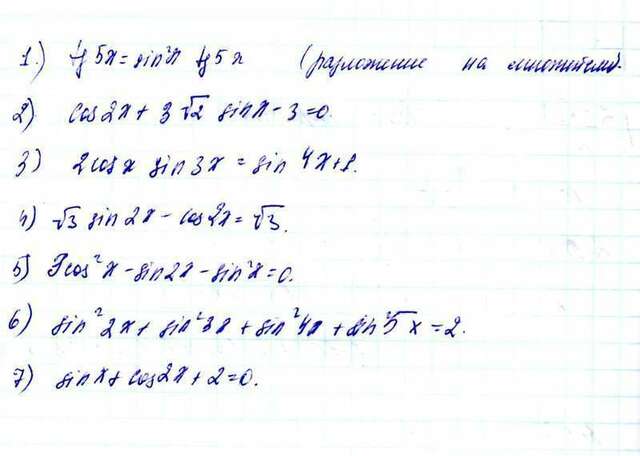 1.) tg 5x = sin²x tg 5x (разложение на множители).
2) cos 2x + 3√2 sin x - 3 = 0.
3) 2cos x sin 3x = sin 4x + 1.
4) √3 sin 2x - cos 2x = √3.
5) 3cos² x - sin 2x - sin² x = 0.
6) sin² 2x + sin² 3x + sin² 4x + sin² 5x = 2.
7) sin x + cos 2x + 2 = 0.